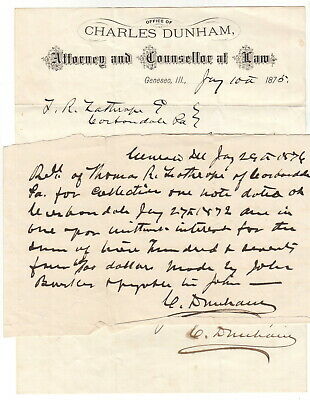 OFFICE OF
CHARLES DUNHAM,
Attorney and Counsellor at Law
Geneseo, Ill., Jay 10th 1875.
T. R. Lathrope
Carbondale Pa
Geneseo Ill Jay 1876
of Thomas R. Lathrope of Carbondale
Pa. for collection one note dated at
Carbondale Jay 27th 1872 due in
one year interest for the
sum of Nine hundred & seventy
four dollars made by John
payable to John
C. Dunham
C. Dunham